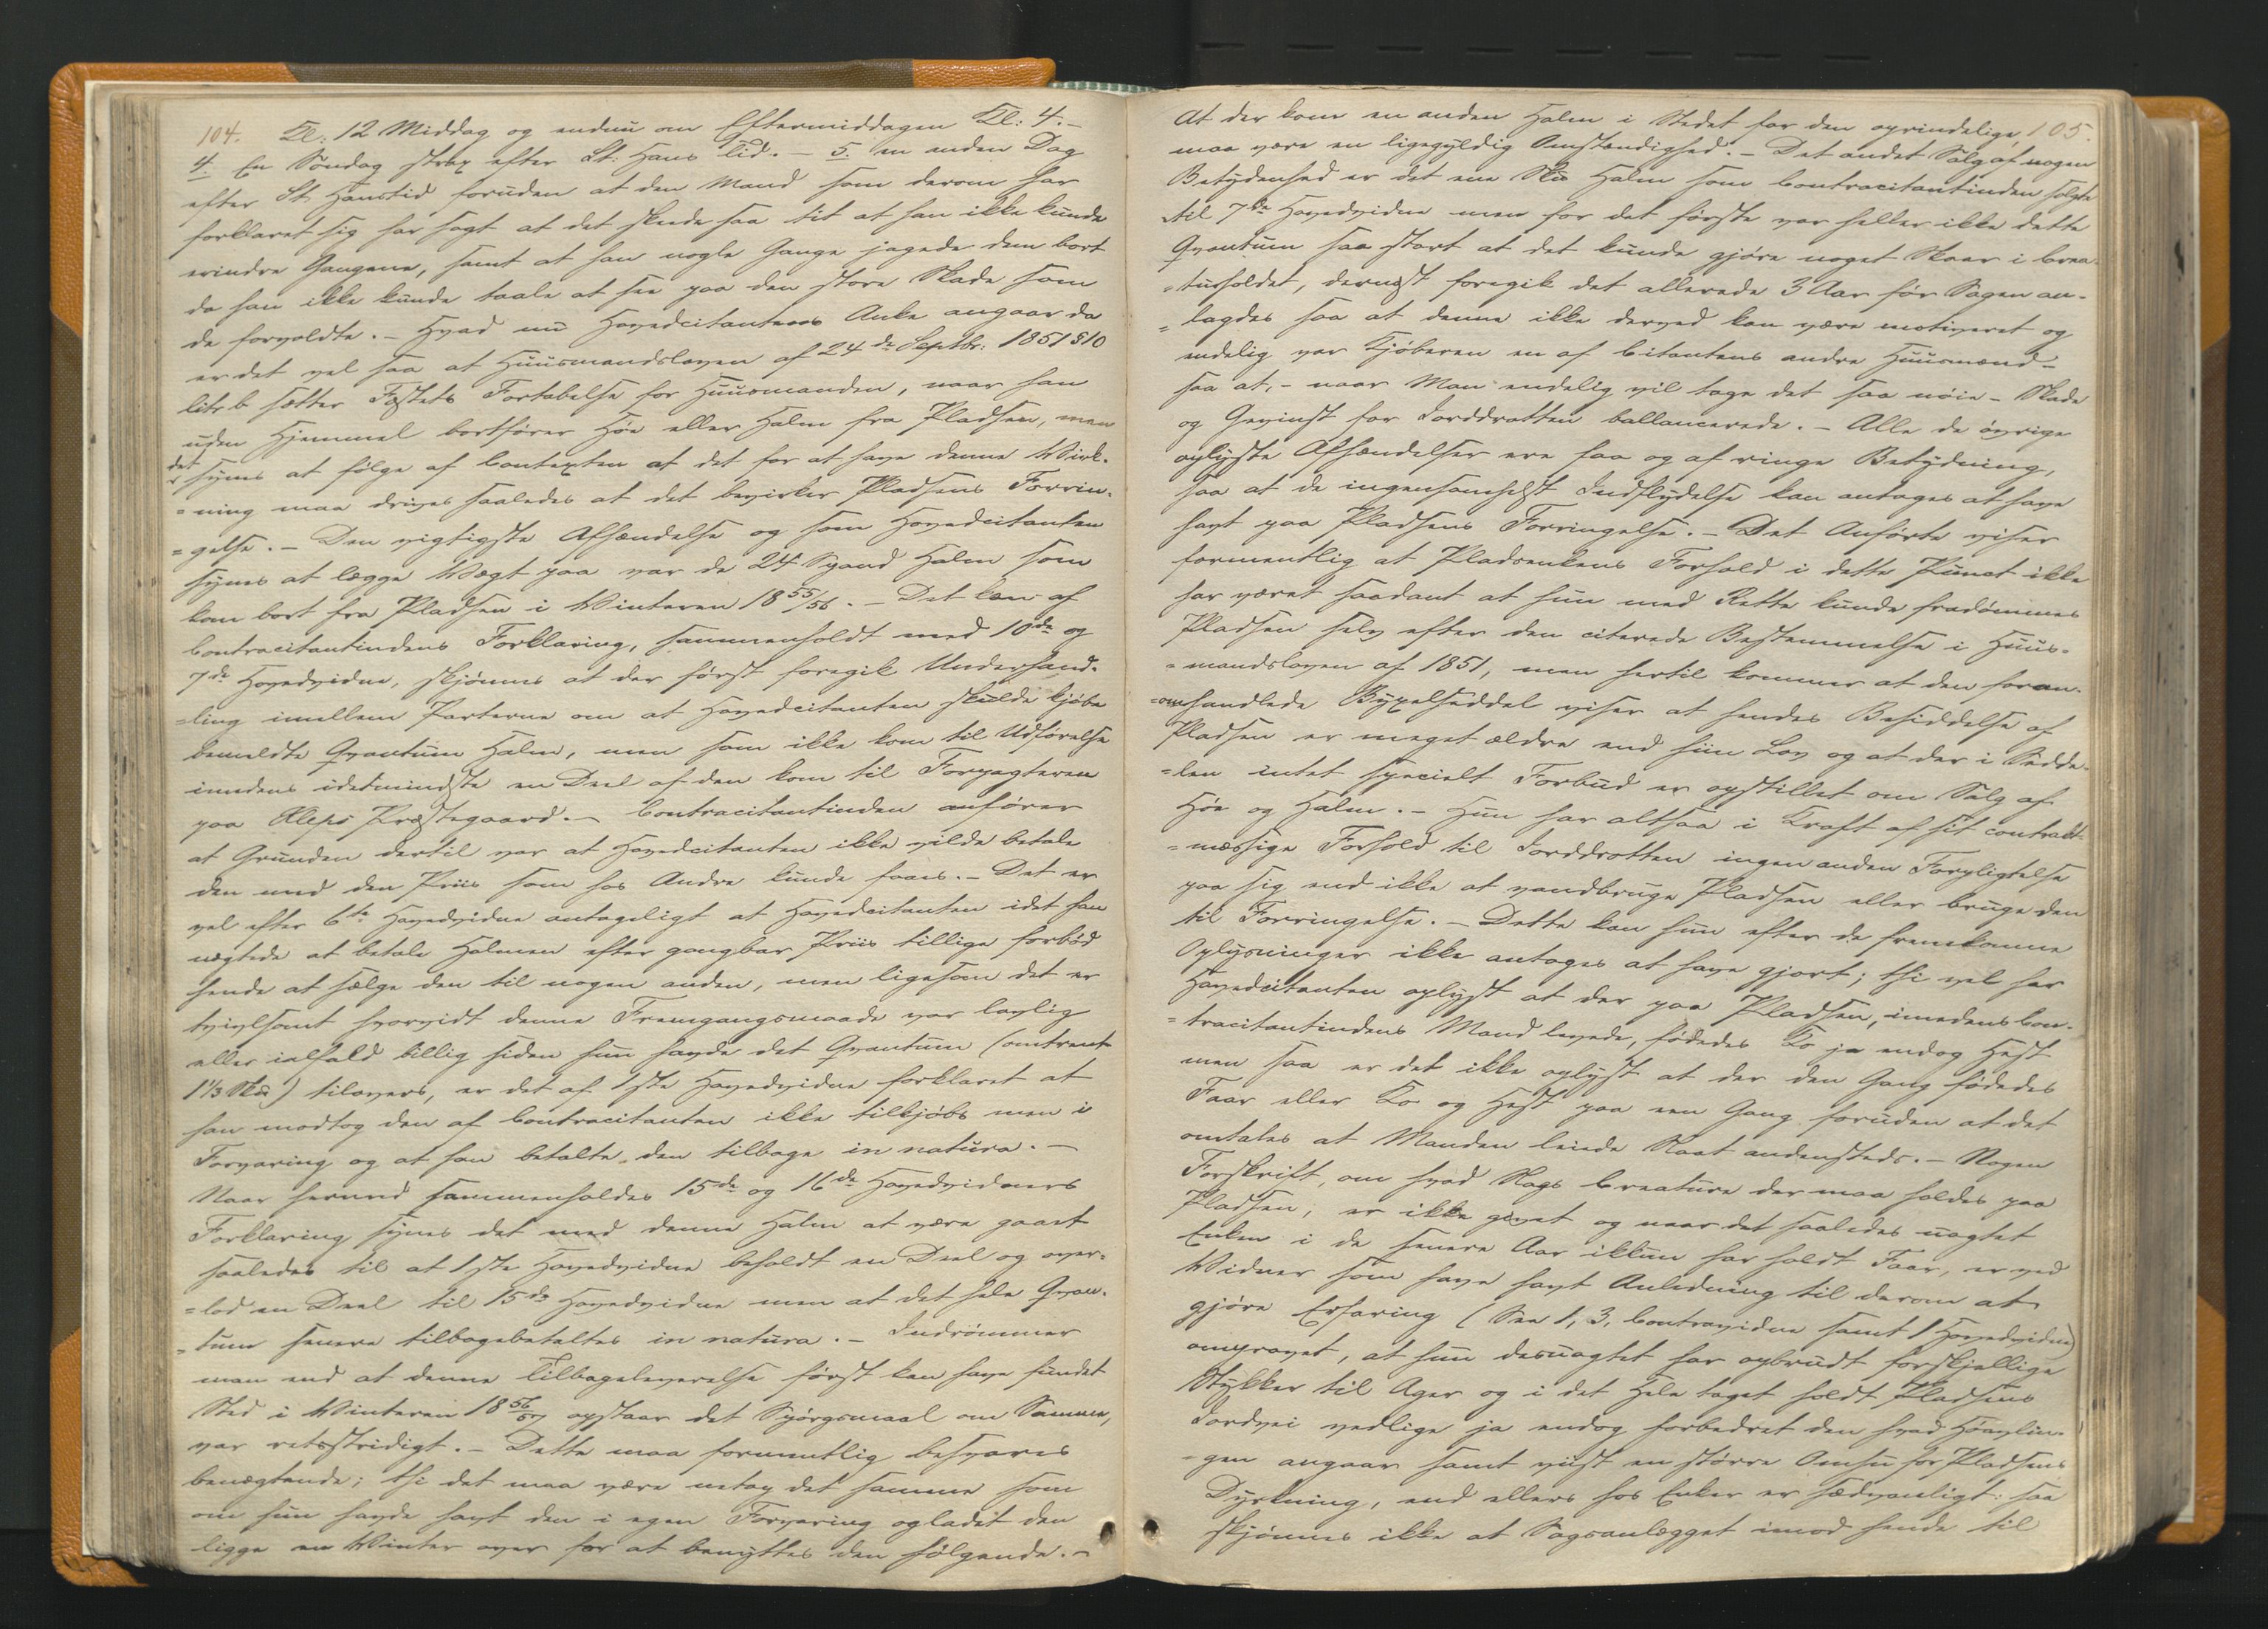 104. Kl: 12 Middag og endnu om Eftermiddagen Kl: 4.-
4. En Søndag strax efter St: Hans Tid. - 5. en anden Dag
efter St Hanstid foruden at den Mand som derom har
forklaret sig har sagt at det skede saa tit at han ikke kunde
erindre Gangene, samt at han nogle Gange jagede dem bort
da han ikke kunde taale at see paa den store Skade som
de forvoldte. - Hvad nu Hovedcitantens Anke angaar da
er det vel saa at Huusmandsloven af 24de Septbr: 1851 § 10
litr b sætter Fæstets Fortabelse for Huusmanden, naar han
uden Hjemmel bortfører Høe eller Halm fra Pladsen, men
det synes at følge af Contexten at det for at have denne Virk-
=ning maa drives saaledes at det bevirker Pladsens Forrin-
=gelse. - Den vigtigste Afhændelse og som Hovedcitanten
synes at lægge Vægt paa var de 24 Spand Halm som
kom bort fra Pladsen i Vinteren 1855/56. - Det kan af
Contracitantindens Forklaring, sammenholdt med 10de og
7de Hovedvidne, skjønnes at der først foregik Underhand-
=ling imellem Parterne om at Hovedcitanten skulde kjøbe
bemeldte Qvantum Halm, men som ikke kom til Udførelse
imedens idetmindste en Deel af den kom til Forpagteren
paa Kleps Præstegaard. - Contracitantinden anfører
at Grunden dertil var at Hovedcitanten ikke vilde betale
den med den Priis som hos Andre kunde faaes. - Det er
vel efter 6te Hovedvidne antageligt at Hovedcitanten idet han
nægtede at betale Halmen efter gangbar Priis tillige forbød
hende at sælge den til nogen anden, men ligesom det er
tvivlsomt hvorvidt denne Fremgangsmaade var lovlig
eller ialfald billig siden hun havde det Qvantum (omtrent
1 1/3 Skd) tilovers, er det af 1ste Hovedvidne forklaret at
han modtog den af Contracitanten ikke tilkjøbs men i
Forvaring og at han betalte den tilbage in natura. -
Naar hermed sammenholdes 15de og 16de Hovedvidners
Forklaring synes det med denne Halm at være gaaet
saaledes til at 1ste Hovedvidne beholdt en Deel og over-
=lod en Deel til 15de Hovedvidne men at det hele Qvan-
=tum senere tilbagebetaltes in natura. - Indrømmer
man end at denne Tilbageleverelse først kan have fundet
Sted i Vinteren 1856/57 opstaar det Spørgsmaal om Samme,
var retsstridigt. - Dette maa formentlig besvares
benægtende; thi det maa være netop det samme som
om hun havde havt den i egen Forvaring og ladet den
ligge en Vinter over for at benyttes den følgende. -
At der kom en anden Halm i Stedet for den oprindelige, 105.
maa være en ligegyldig Omstændighed. - Det andet Salg af nogen
Betydenhed er det ene Skd Halm som Contracitantinden solgte
til 7de Hovedvidne men for det første var heller ikke dette
Qvantum saa stort at det kunde gjøre noget Skaar i Crea-
=tursholdet, dernæst foregik det allerede 3 Aar før Sagen an-
=lagdes saa at denne ikke derved kan være motiveret og
endelig var Kjøberen en af Citantens andre Huusmænd -
saa at, - naar Man endelig vil tage det saa nøie - Skade
og Gevinst for Jorddrotten ballancerede. - Alle de øvrige
oplyste Afhændelser ere faa og af ringe Betydning,
saa at de ingensomhelst Indflydelse kan antages at have
havt paa Pladsens Forringelse. - Det Anførte viser
formentlig at Pladsenkens Forhold i dette Punct ikke
har været saadant at hun med Rette kunde fradømmes
Pladsen selv efter den citerede Bestemmelse i Huus-
=mandsloven af 1851, men hertil kommer at den foran-
=omhandlede Byxelseddel viser at hendes Besiddelse af
Pladsen er meget ældre end hiin Lov og at der i Sedde-
=len intet specielt Forbud er opstillet om Salg af
Høe og Halm. - Hun har altsaa i Kraft af sit contrakt-
=mæssige Forhold til Jorddrotten ingen anden Forpligtelse
paa sig end ikke at vandbruge Pladsen eller bruge den
til Forringelse. - Dette kan hun efter de fremkomne
Oplysninger ikke antages at have gjort; thi vel har
Hovedcitanten oplyst at der paa Pladsen, imedens Con-
=tracitantindens Mand levede, fødedes Ko ja endog Hest
men saa er det ikke oplyst at der den Gang fødedes
Faar eller Ko og Hest paa een Gang foruden at det
omtales at Manden leiede Slaat andensteds. - Nogen
Forskrift, om hvad Slags Creature der maa holdes paa
Pladsen, er ikke givet og naar det saaledes uagtet
Enken i de senere Aar ikkun har holdt Faar, er ved
Vidner som have havt Anledning til derom at
gjøre Erfaring (See 1, 3, Contravidne samt 1 Hovedvidne)
omprovet, at hun desuagtet har opbrudt forskjellige
Stykker til Ager og i det Hele taget holdt Pladsens
Jordvei vedlige ja endog forbedret den hvad Høavlin-
=gen angaar samt viist en større Omhu for Pladsens
Dyrkning, end ellers hos Enker er sædvanligt: saa
skjønnes ikke at Sagsanlægget imod hende til